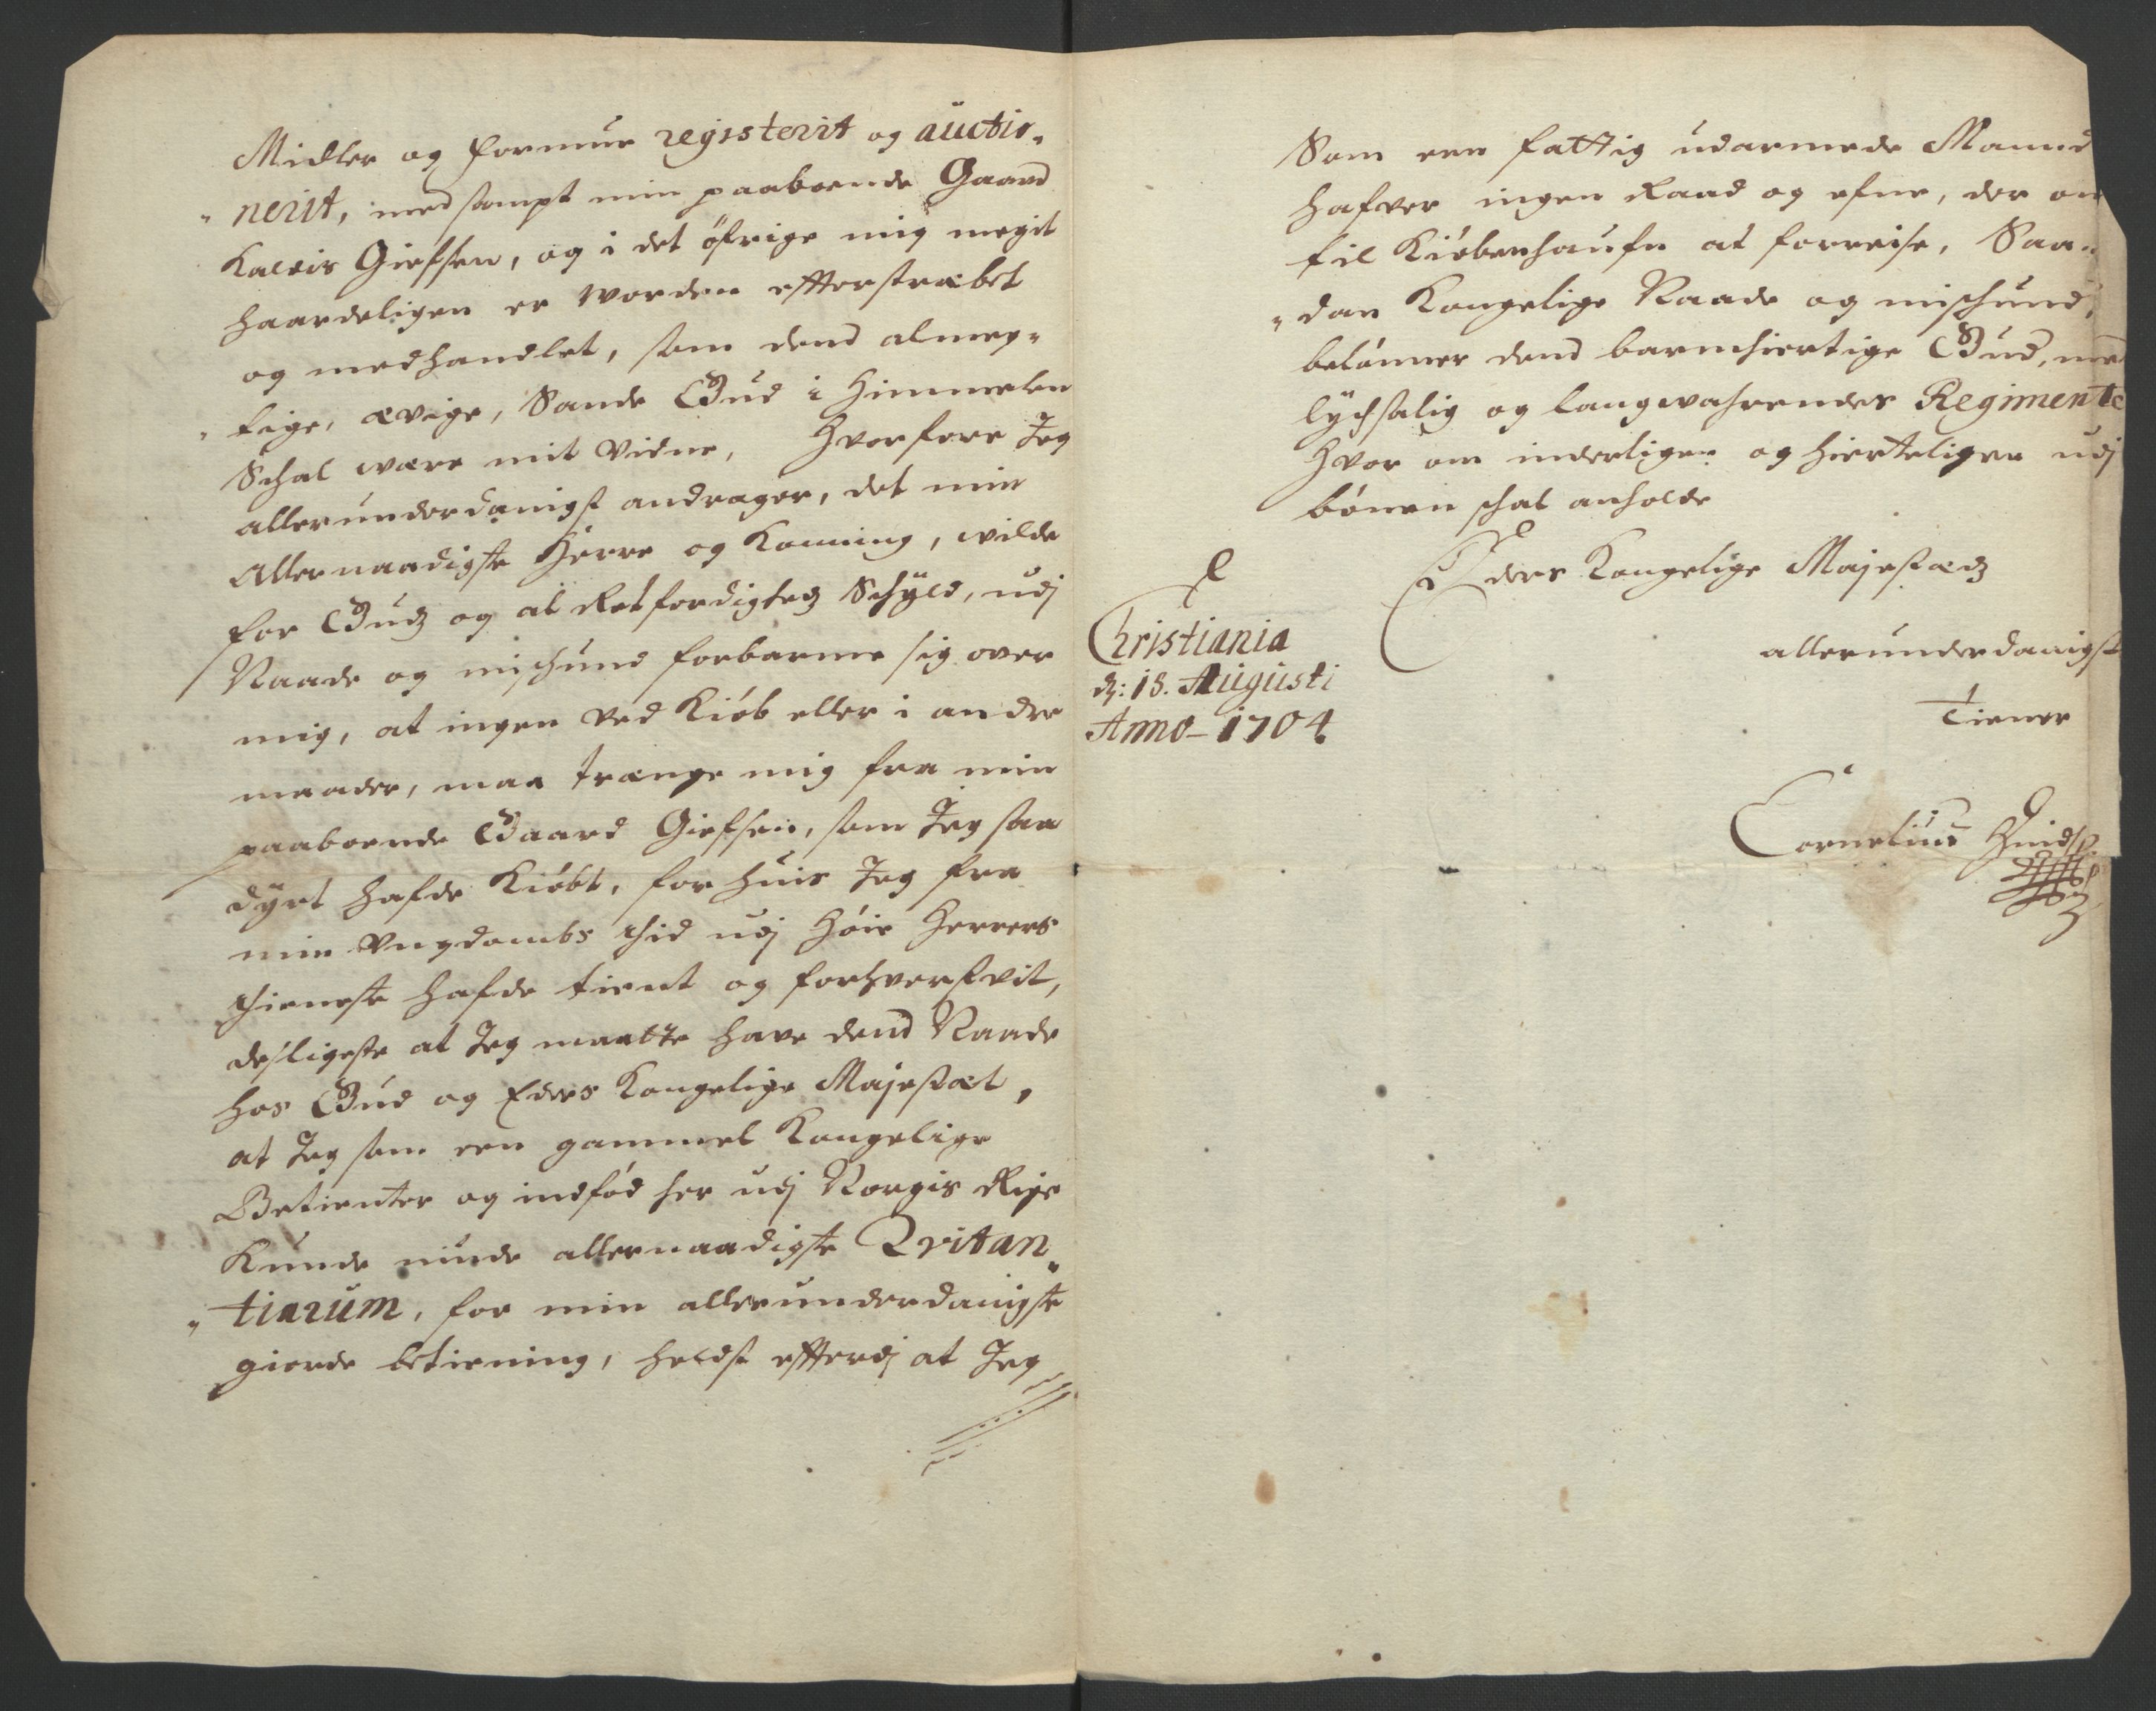 Midler og formue registerit og auctio-
-nerit, med sampt min paaboende Gaard
Kaldis Giefsen, og i det öfrige mig megit
haardeligen er worden efftersträbet
og medhandlet, som dend almeg-
-tige, ævige, Sande Gud i Himmelen
Schal være mit vidne, Hvorfore Jeg
allerunderdanigst andrager, det min
Allernaadigste Herre og Konning, wilde
for Gudz og al Retferdigheds Schyld, udj
Naade og mischund forbarme sig over
mig, at ingen ved Kiöb eller i andre
maader, maa trænge mig fra min
paaboende Gaard Giefsen, som Jeg saa
dyrt hafde Kiöbt, for huis Jeg fra
min Ungdombs thid udj Höie Herrers
thieneste hafde tient og forhverfvit,
desligeste at Jeg maatte have dend Naade
hos Gud og Eders Kongelige Majestæt,
at Jeg som een gammel Kongelige
Betienter og indföd her udj Norgis Rige
Kunde niude allernaadigste Qvitan-
-tiarum, for min allerunderdanigste
giorde betiening, heldst effterdj at Jeg
Som een fattig udarmede Mannd
hafver ingen Raad og efne, der om
til Kiöbenhaufn at forreise, Saa-
-dan Kongelige Naade og mischund,
belönner dend barmhiertige Gud, med
lychsalig og langwahrendes Regimente
Hvor om inderligen og hierteligen udj
bönen schal anholde
Eders Kongelige Majestædz
Christiania
dz: 18. Augusti
Anno-1704
allerunderdanigst
Tiener
Cornelius